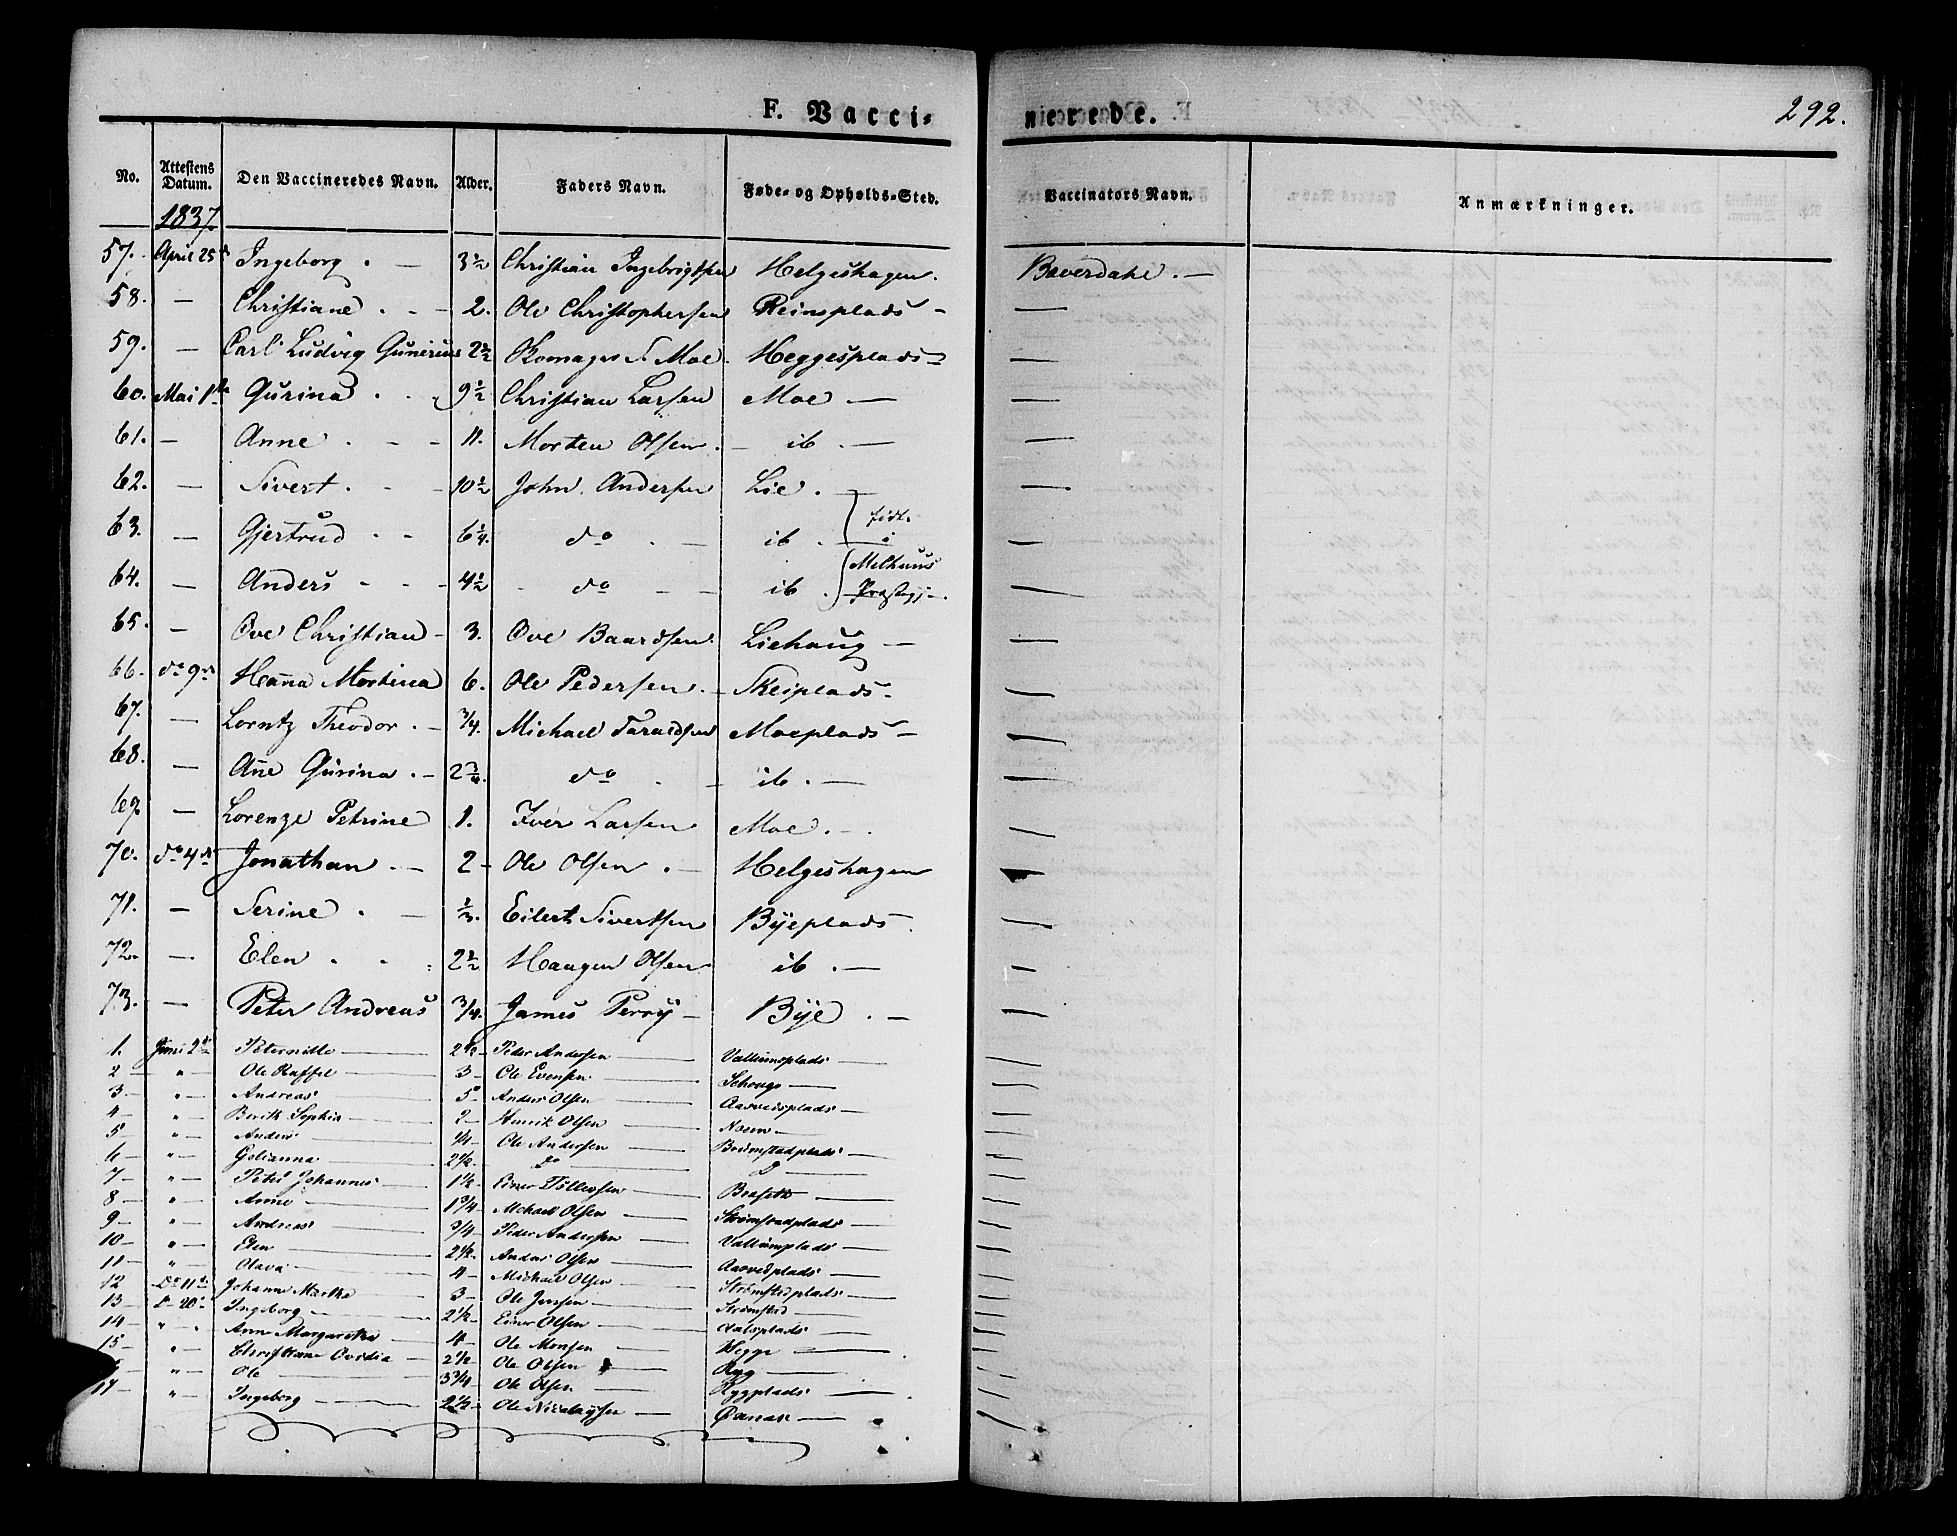 F. Vacci-
nierede.
292.
No. Attestens Datum. Den Vaccineredes Navn. Alder. Faders Navn. Føde- og Opholds-Sted. Vaccinators Navn. Anmærkninger.
1837.
57. April 25 Ingeborg . — 3 1/2 Christian Ingebrigtsen Helgeshagen. Baverdahl . —
58. — Christiane . - - 2. Ole Christophersen Reinsplads - —
59. — Carl Ludvig Gunerius 2 1/2 Moe. Heggesplads - —
60. Mai 1ste Gurina . . . 9 1/2 Christian Larsen Moe — —
61. — Anne . - - 11. Morten Olsen. — ib . — —
62. — Sivert . - - 10 1/2 John Andersen Lie . — —
63. — Gjertrud . - 6 1/4. do . — ib . — født i —
64. — Anders - - - 4 1/2 - do - - ib . Melhuus Præstegj. —
65. — Ove Christian - 3. Ove Baardsen Liehaug — —
66. do 9de Hanna Martina 6. Ole Pedersen . — Skeiplads - —
67. — Lorntz Theodor . - 3/4. Michael Taraldsen Moeplads - —
68. — Ane Gurina . - 2 3/4. do . — ib . — —
69. — Lorenze Petrine 1. Iver Larsen Moe . - . —
70. do 4de Jonathan . - 2 - Ole Olsen . — Helgeshagen —
71. — Serine . — 1/3. Eilert Sivertsen Byeplads - —
72. — Elen . . : 2 1/2 Haagen Olsen ib . — —
73. — Peter Andreas 3/4. James Perry - Bye . — —
1. Juni 2de Peternille — 2 1/2 - Peder Andersen Vallumsplads —
2 — " — Ole Raffel — 3 — Ole Evensen — —
3 — " — Andreas — 5 Anders Olsen — Aasvedsplads — —
4 — " — Berith Sophia — 2 — Henrik Olsen — Noem — —
5 — " — Anders — 1/4 — Ole Andersen — —
6 — " — — 2 1/2. do — —
7 — " — Peter Johannes — 1 1/2 - Einer Tollevsen — —
8 — " — Anne — 1 3/4 — Michael Olsen — Strømstadplads — —
9 — " — Andreas — 3/4 — Peder Andersen — Vallumplads — —
10 — " — Elen — 2 1/2. Anders Olsen — Aasvedplads — —
11 — " — Olava — 4 — Michael Olsen — Strømstadplads — —
12 Do 11te Johanna Martha 3 — Ole Jensen — Strømstad — —
13 — D— 20de Ingeborg — 2 1/2 — Einer Olsen — —
14 — " " Ane Margaretha — 4 — Ole Monsen — Hegge — —
15 — " — Christiane Ovidia — 2 1/2 — Ole Olsen — Ryg — —
— " — Ole — 3 3/4 — Ole Olsen — Rygplads — —
17 — " — Ingeborg — 2 1/2 — Ole Nicolaysen — —